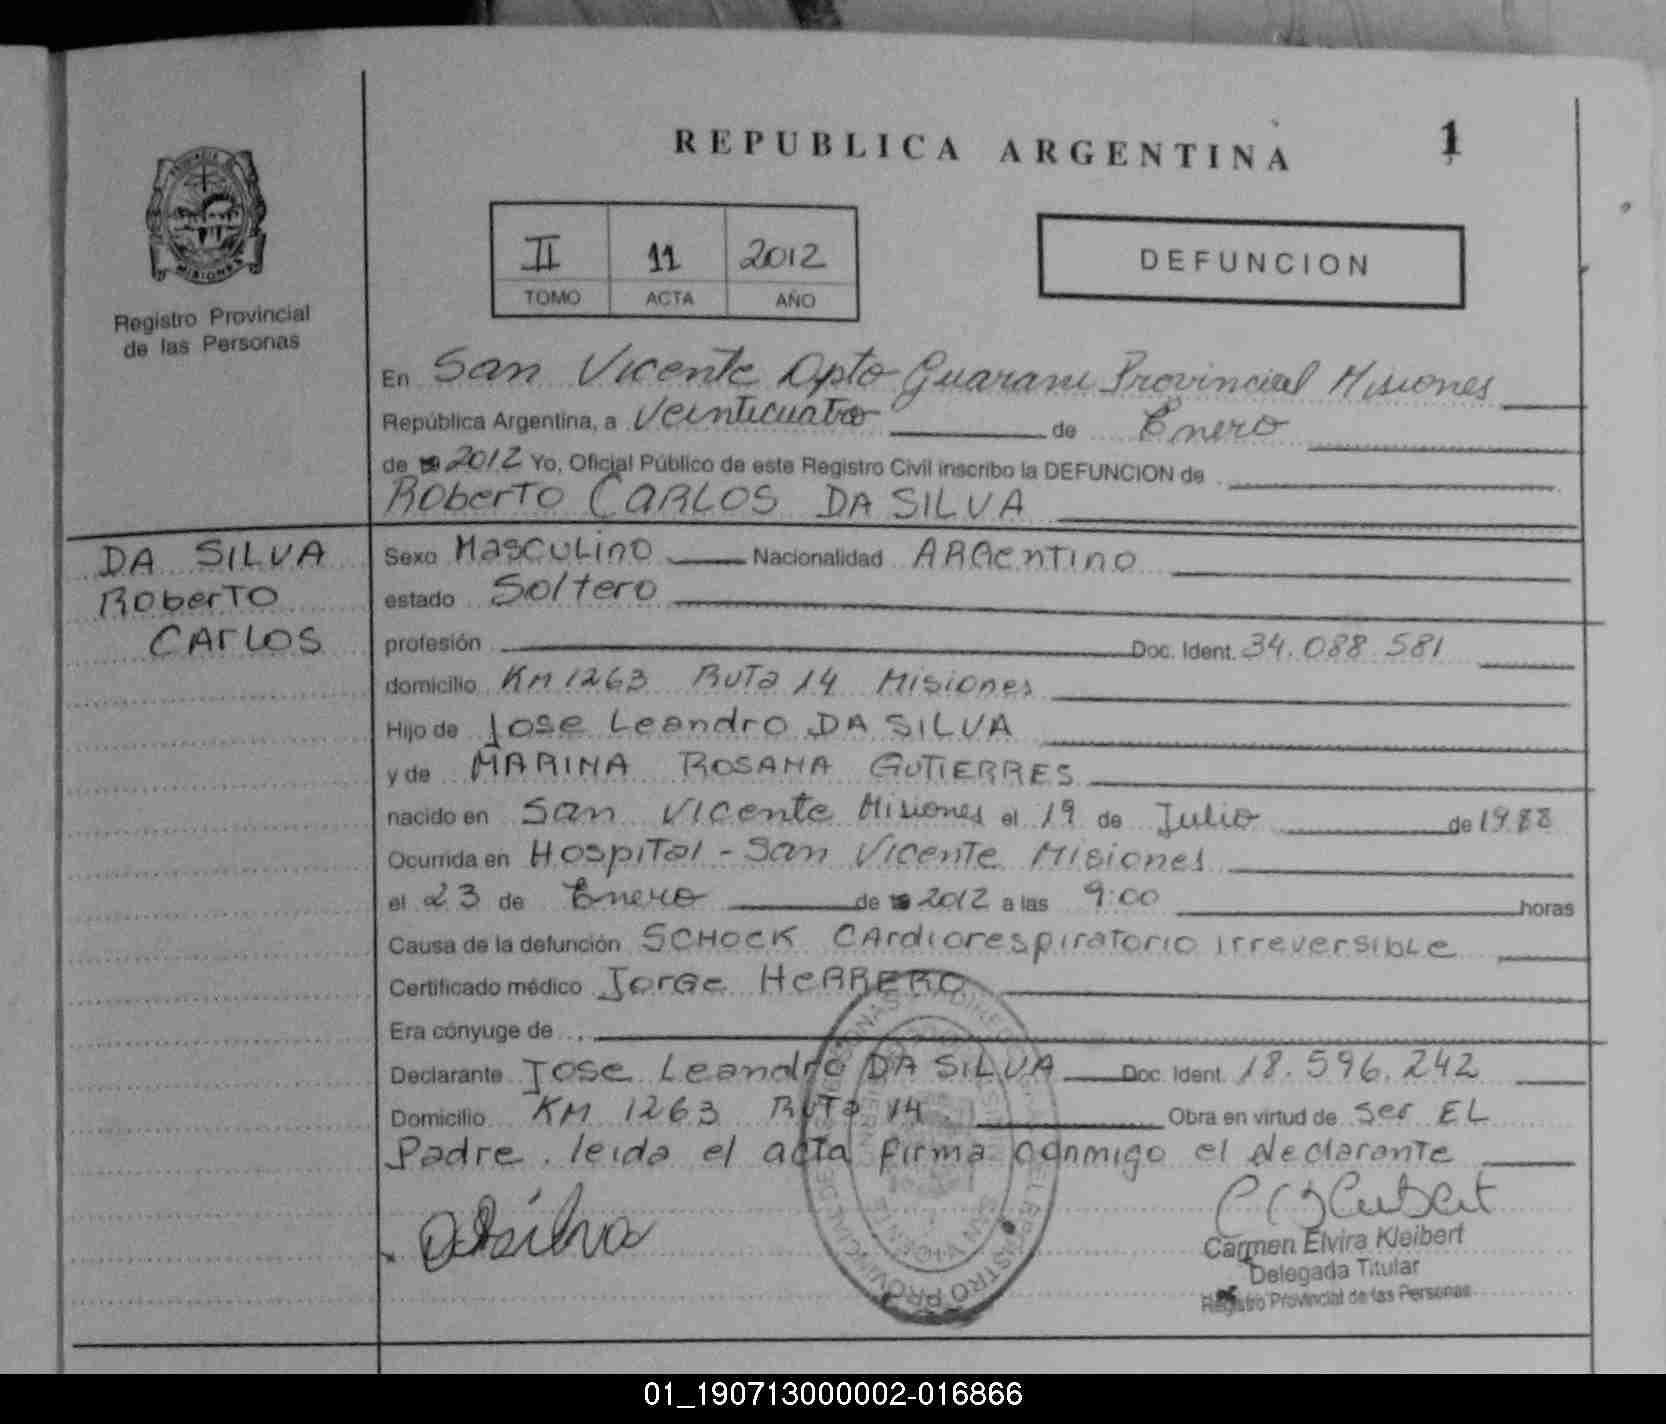 REPUBLICA ARGENTINA
1
MISIONES
Registro Provincial
de las Personas
II 11 2012
TOMO ACTA AÑO
DEFUNCION
En San Vicente Dpto Guarani Provincial Misiones
República Argentina, a Veinticuatro de Enero
de 2012 Yo, Oficial Público de este Registro Civil inscribo la DEFUNCION de
Roberto CARLOS DA SILVA
DA SILVA
Roberto
CArLOS
Sexo Masculino Nacionalidad ARGentino
estado Soltero
profesión Doc. Ident. 34.088.581
domicilio KM 1263 RuTa 14 Misiones
Hijo de Jose Leandro DA SILVA
y de MARINA ROSANA GUTIERRES
nacido en San Vicente Misiones el 19 de Julio de 1988
Ocurrida en HospiTal - San Vicente Misiones
el 23 de Enero de 2012 a las 9:00 horas
Causa de la defunción SCHOCK CArdiorespiratorio irreversible
Certificado médico Jorge HERRERO
Era cónyuge de
Declarante Jose Leandro DA SILVA Doc. Ident. 18.596.242
Domicilio KM 1263 RuTa 14 Obra en virtud de ser EL
Padre. leida el acta firma conmigo el declarante
Carmen Elvira Kleibert
Delegada Titular
Registro Provincial de las Personas
01_190713000002-016866